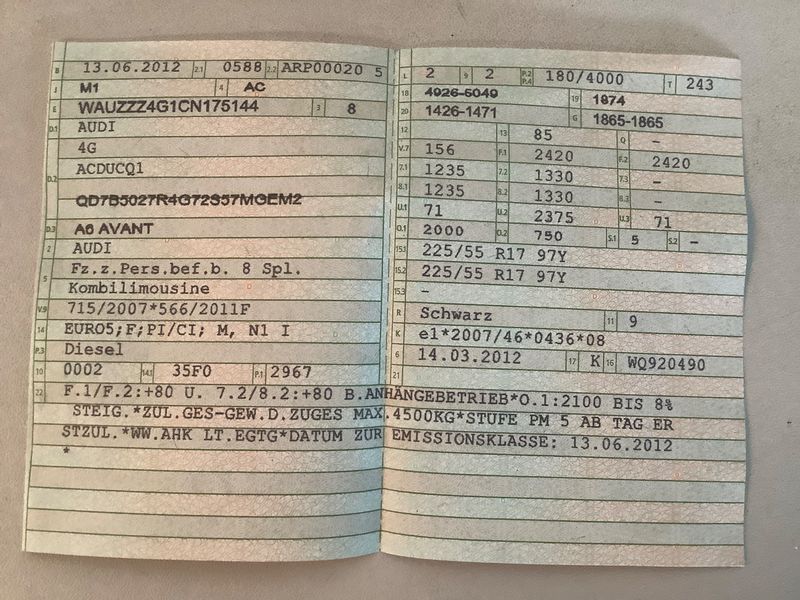 B 13.06.2012 2.1 0588 2.2 ARP00020 5
J M1 4 AC
E WAUZZZ4G1CN175144 3 8
D.1 AUDI
4G
D.2 ACDUCQ1
QD7B5027R4G72S57MGEM2
D.3 A6 AVANT
2 AUDI
5 Fz.z.Pers.bef.b. 8 Spl.
Kombilimousine
V.9 715/2007*566/2011F
14 EURO5;F;PI/CI; M, N1 I
P.3 Diesel
10 0002 14.1 35F0 P.1 2967
L 2 9 2 P.2 P.4 180/4000 T 243
18 4926-5049 19 1874
20 1426-1471 G 1865-1865
12 – 13 85 Q –
V.7 156 F.1 2420 F.2 2420
7.1 1235 7.2 1330 7.3 –
8.1 1235 8.2 1330 8.3 –
U.1 71 U.2 2375 U.3 71
O.1 2000 O.2 750 S.1 5 S.2 –
15.1 225/55 R17 97Y
15.2 225/55 R17 97Y
15.3 –
R Schwarz 11 9
K e1*2007/46*0436*08
6 14.03.2012 17 K 16 WQ920490
21
22 F.1/F.2:+80 U. 7.2/8.2:+80 B.ANHÄNGEBETRIEB*O.1:2100 BIS 8%
STEIG.*ZUL.GES-GEW.D.ZUGES MAX.4500KG*STUFE PM 5 AB TAG ER
STZUL.*WW.AHK LT.EGTG*DATUM ZUR EMISSIONSKLASSE: 13.06.2012
*